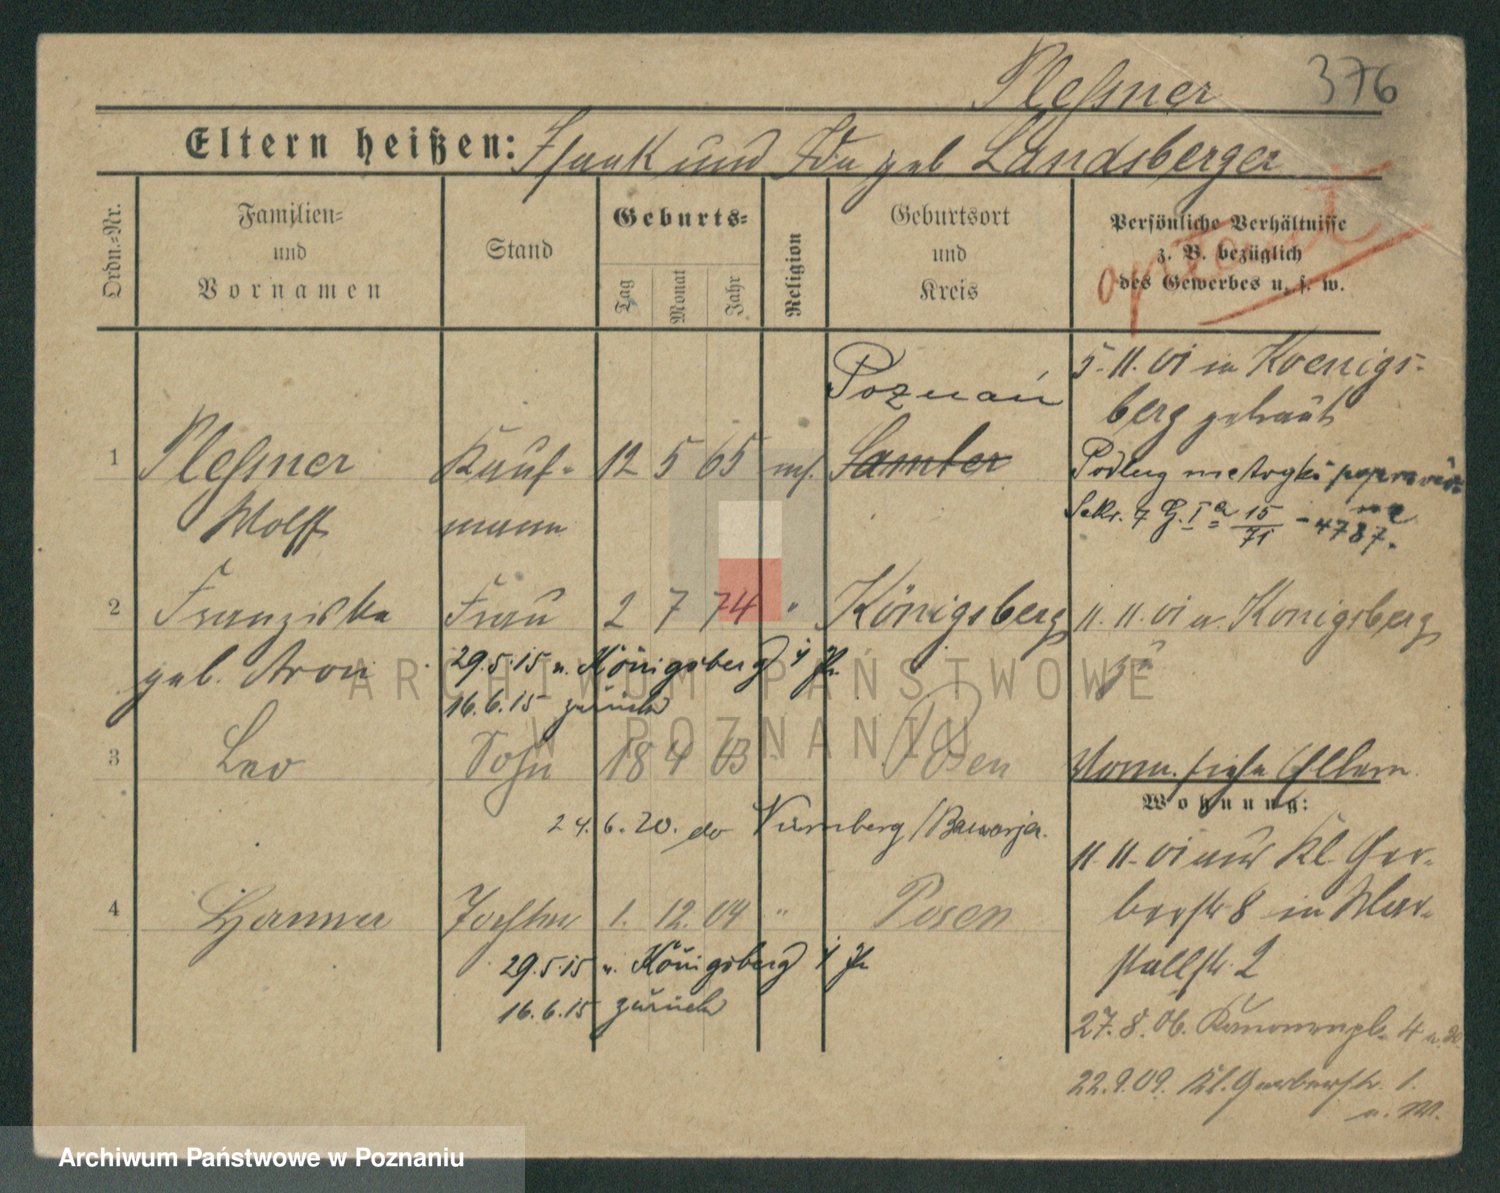 Pleßner 376
Eltern heißen: Isaak und Ida geb Landsberger
Ordn.-Nr.
Familien-
und
Vornamen
Stand
Geburts-
Tag
Monat
Jahr
Religion
Geburtsort
und
Kreis
Persönliche Verhältnisse
z. B. bezüglich
des Gewerbes u. s. w.
Poznań
5. 11. 01 in Koenigs-
berg getraut
1 Pleßner Kauf- 12 5 65 mos. Samter
Wolff mann
Podług metryki
15
71
4787.
2 Franziska Frau 2 7 74 " Königsberg
11. 11. 01 v. Königsberg
geb. Aron
zu
29.5.15 n. Königsberg i Pr
16.6.15 zurück
3 Leo Sohn 18 4 03 Posen
Vorm. siehe Eltern
24.6.20. do Nürnberg /Bawarja.
Wohnung:
11. 11. 01 aus Kl. Ger-
berstr 8 in Mar-
stallstr. 2
4 Hanna Tochter 1. 12. 04 " Posen
29.5.15 n. Königsberg i Pr
16.6.15 zurück
27. 8. 06. Kanonenpl. 4
22. 9. 09. Kl. Gerberstr. 1.
ARCHIWUM PAŃSTWOWE
W POZNANIU
Archiwum Państwowe w Poznaniu